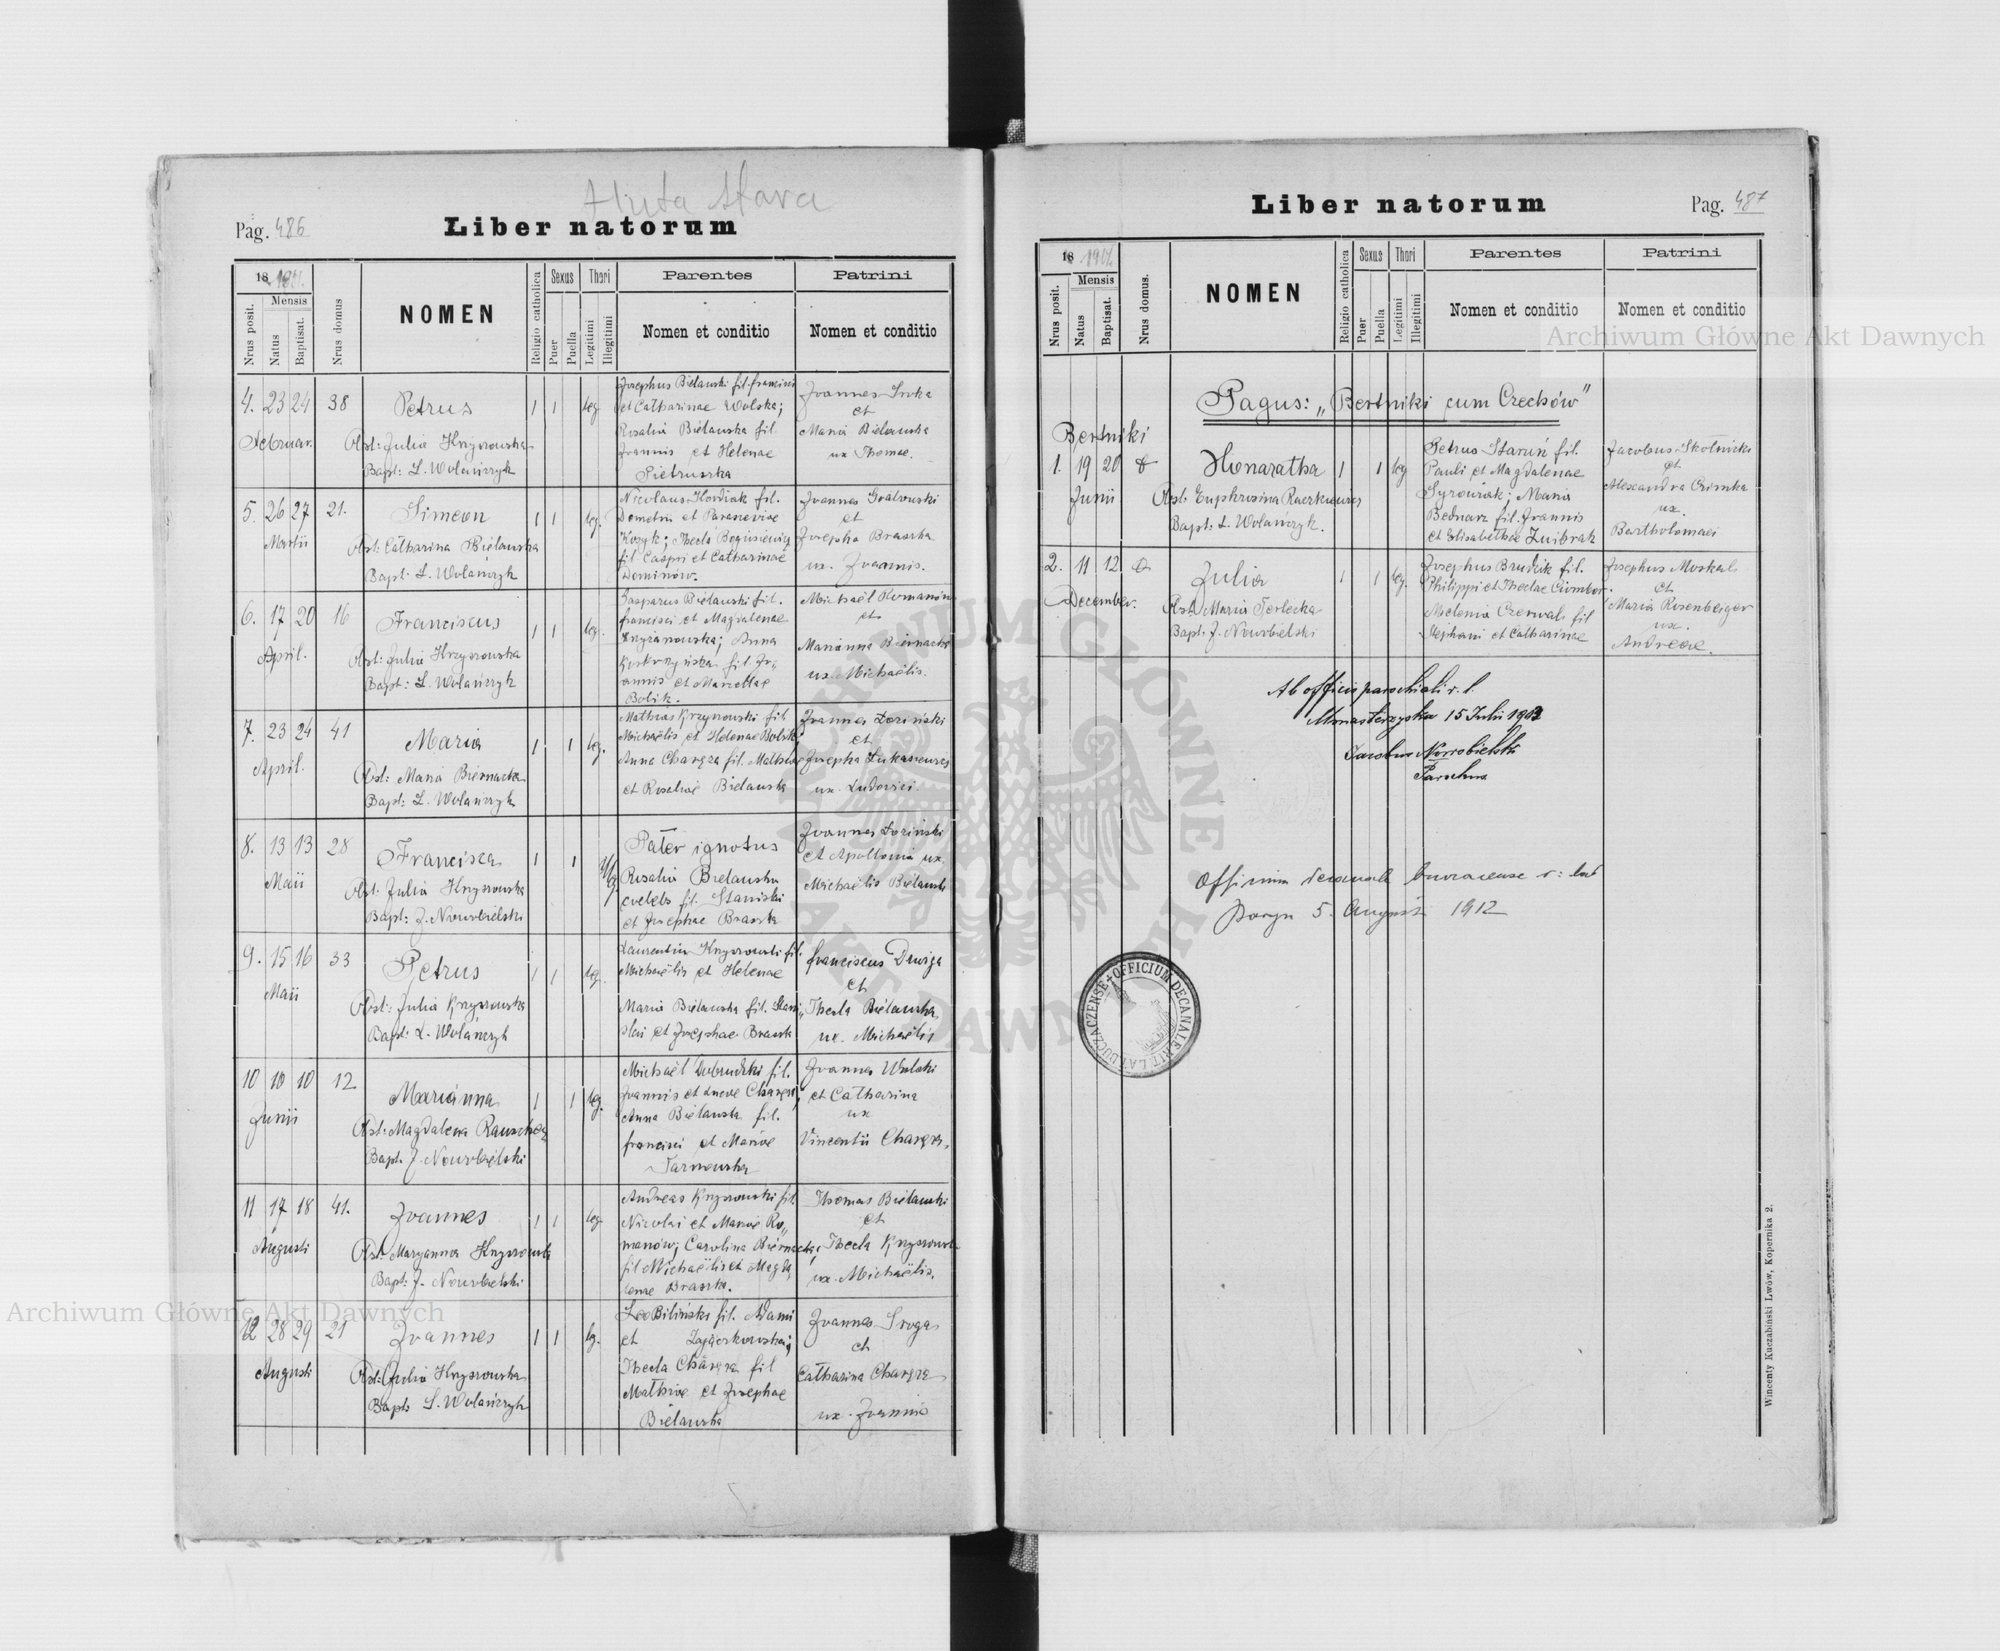 Huta Stara
Pag. 486
Liber natorum
18 1901.
Nrus posit.
Mensis
Natus
Baptisat.
Nrus domus
NOMEN
Religio catholica
Sexus
Puer
Puella
Thori
Legitimi
Illegitimi
Parentes
Nomen et conditio
Patrini
Nomen et conditio
4. 23 24 38 Petrus 1 1 leg
Februar.
Obst: Julia Krzyszowska
Bapt: L. Wolańczyk
Josephus Bielawski fil. francisci
et Catharinae Wolska;
Rosalia Bielawska fil.
Joannis et Helenae
Pietruszka
Joannes
et
Maria Bielawska
ux Thomae.
5. 26 27 21. Simeon 1 1 leg.
Martii
Obst: Catharina Bielawska
Bapt: L. Wolańczyk
Nicolaus Hordiak fil.
Demetrii et Parasceviae
Kozyk; Thecla Bogusiewicz
fil Caspri et Catharinae
Dominow.
Joannes Gralowski
et
Josepha Braszka
ux. Joannis.
6. 17 20 16 Franciscus 1 1 leg.
April.
Obst: Julia Krzyszowska
Bapt: L. Wolańczyk
Gasparus Bielawski fil.
francisci et Magdalenae
Krzyżanowska; Anna
fil Jo-
annis et Marcellae
Bolik.
Michaël Romanów
et
Marianna Biernacka
ux. Michaëlis.
7. 23 24 41 Maria 1 1 leg.
April.
Obst: Maria Biernacka
Bapt: L. Wolańczyk
Mathias Krzyszowski fil
Michaëlis et Helenae Bolik;
Anna Charęza fil. Mathiae
et Rosaliae Bielawska
Joannes Loziński
et
Josepha Lukasiewicz
ux. Ludovici.
8. 13 13 28 Francisca 1 1 illeg
Maii
Obst. Julia Krzyszowska
Bapt: J. Nowobielski
Pater ignotus
Rosalia Bielawska
coelebs fil. Stanislai
et Josephae Braszka
Joannes Loziński
et Apollonia ux.
Michaëlis Bielawski
9. 15 16 33 Petrus 1 1 leg.
Maii
Obst: Julia Krzyszowska
Bapt: L. Wolańczyk
Laurentius Krzyszowski fil.
Michaëlis et Helenae
Maria Bielawska fil. Stani„
slai et Josephae Braszka
franciscus Dwiga
et
Thecla Bielawska
ux. Michaëlis
10 10 10 12 Marianna 1 1 leg.
Junii
Obst: Magdalena
Bapt. J. Nowobielski
Michaël Dobrudzki fil.
Joannis et Annae Charęza;
Anna Bielawska fil.
francisci et Mariae
Tarnowska
Joannes Wolski
et Catharina
ux
Vincentii Charęza.
11 17 18 41. Joannes 1 1 leg.
Augusti
Obst: Maryanna Krzyszowska
Bapt: J. Nowobielski
Andreas Krzyszowski fil
Nicolai et Mariae Ro„
manów; Carolina Biernacka;
fil Michaëlis et Magda
lenae Braszka.
Thomas Bielawski
et
Thecla Krzyszowska
ux. Michaëlis.
12 28 29 21 Joannes 1 1 leg.
Augusti
Obst: Julia Krzyszowska
Bapt: L. Wolańczyk
Leo Biliński fil. Adami
et
Thecla Charęza fil
Mathiae et Josephae
Bielawska
Joannes Sroga
et
Catharina Charęza
ux. Joannis
Liber natorum
Pag. 487
18 1901.
Nrus posit.
Mensis
Natus
Baptisat.
Nrus domus.
NOMEN
Religio catholica
Sexus
Puer
Puella
Thori
Legitimi
Illegitimi
Parentes
Nomen et conditio
Patrini
Nomen et conditio
Pagus: „Bertniki cum Czechów”
Bertniki
1. 19 20 Honaratha 1 1 leg
Junii
Obst. Euphrosina
Bapt: L. Wolańczyk.
Petrus Staruń fil.
Pauli et Magdalenae
Maria
Bednarz fil. Joannis
et Elisabethae
Jacobus Skolnicki
et
Alexandra
ux.
Bartholomaei
2. 11 12 Julia 1 1 leg.
December.
Obst. Maria Terlecka
Bapt: J. Nowobielski
Josephus Brudzik fil.
Philippi et Theclae
Melania fil
Stephani et Catharinae
Josephus Moskal
et
Maria Rosenberger
ux.
Andreae.
Ab officio parochiali r. l.
Monasterzyska 15 Julii
Jacobus Nowobielski
Parochus
Officium decanale Buczacense r: lat
5. Augusti 1912
OFFICIUM DECANALE RIT. LAT. BUCZACZENSE
Wincenty Kuczabiński Lwów, Kopernika 2.
Archiwum Główne Akt Dawnych
Archiwum Główne Akt Dawnych
ARCHIWUM GŁÓWNE AKT DAWNYCH